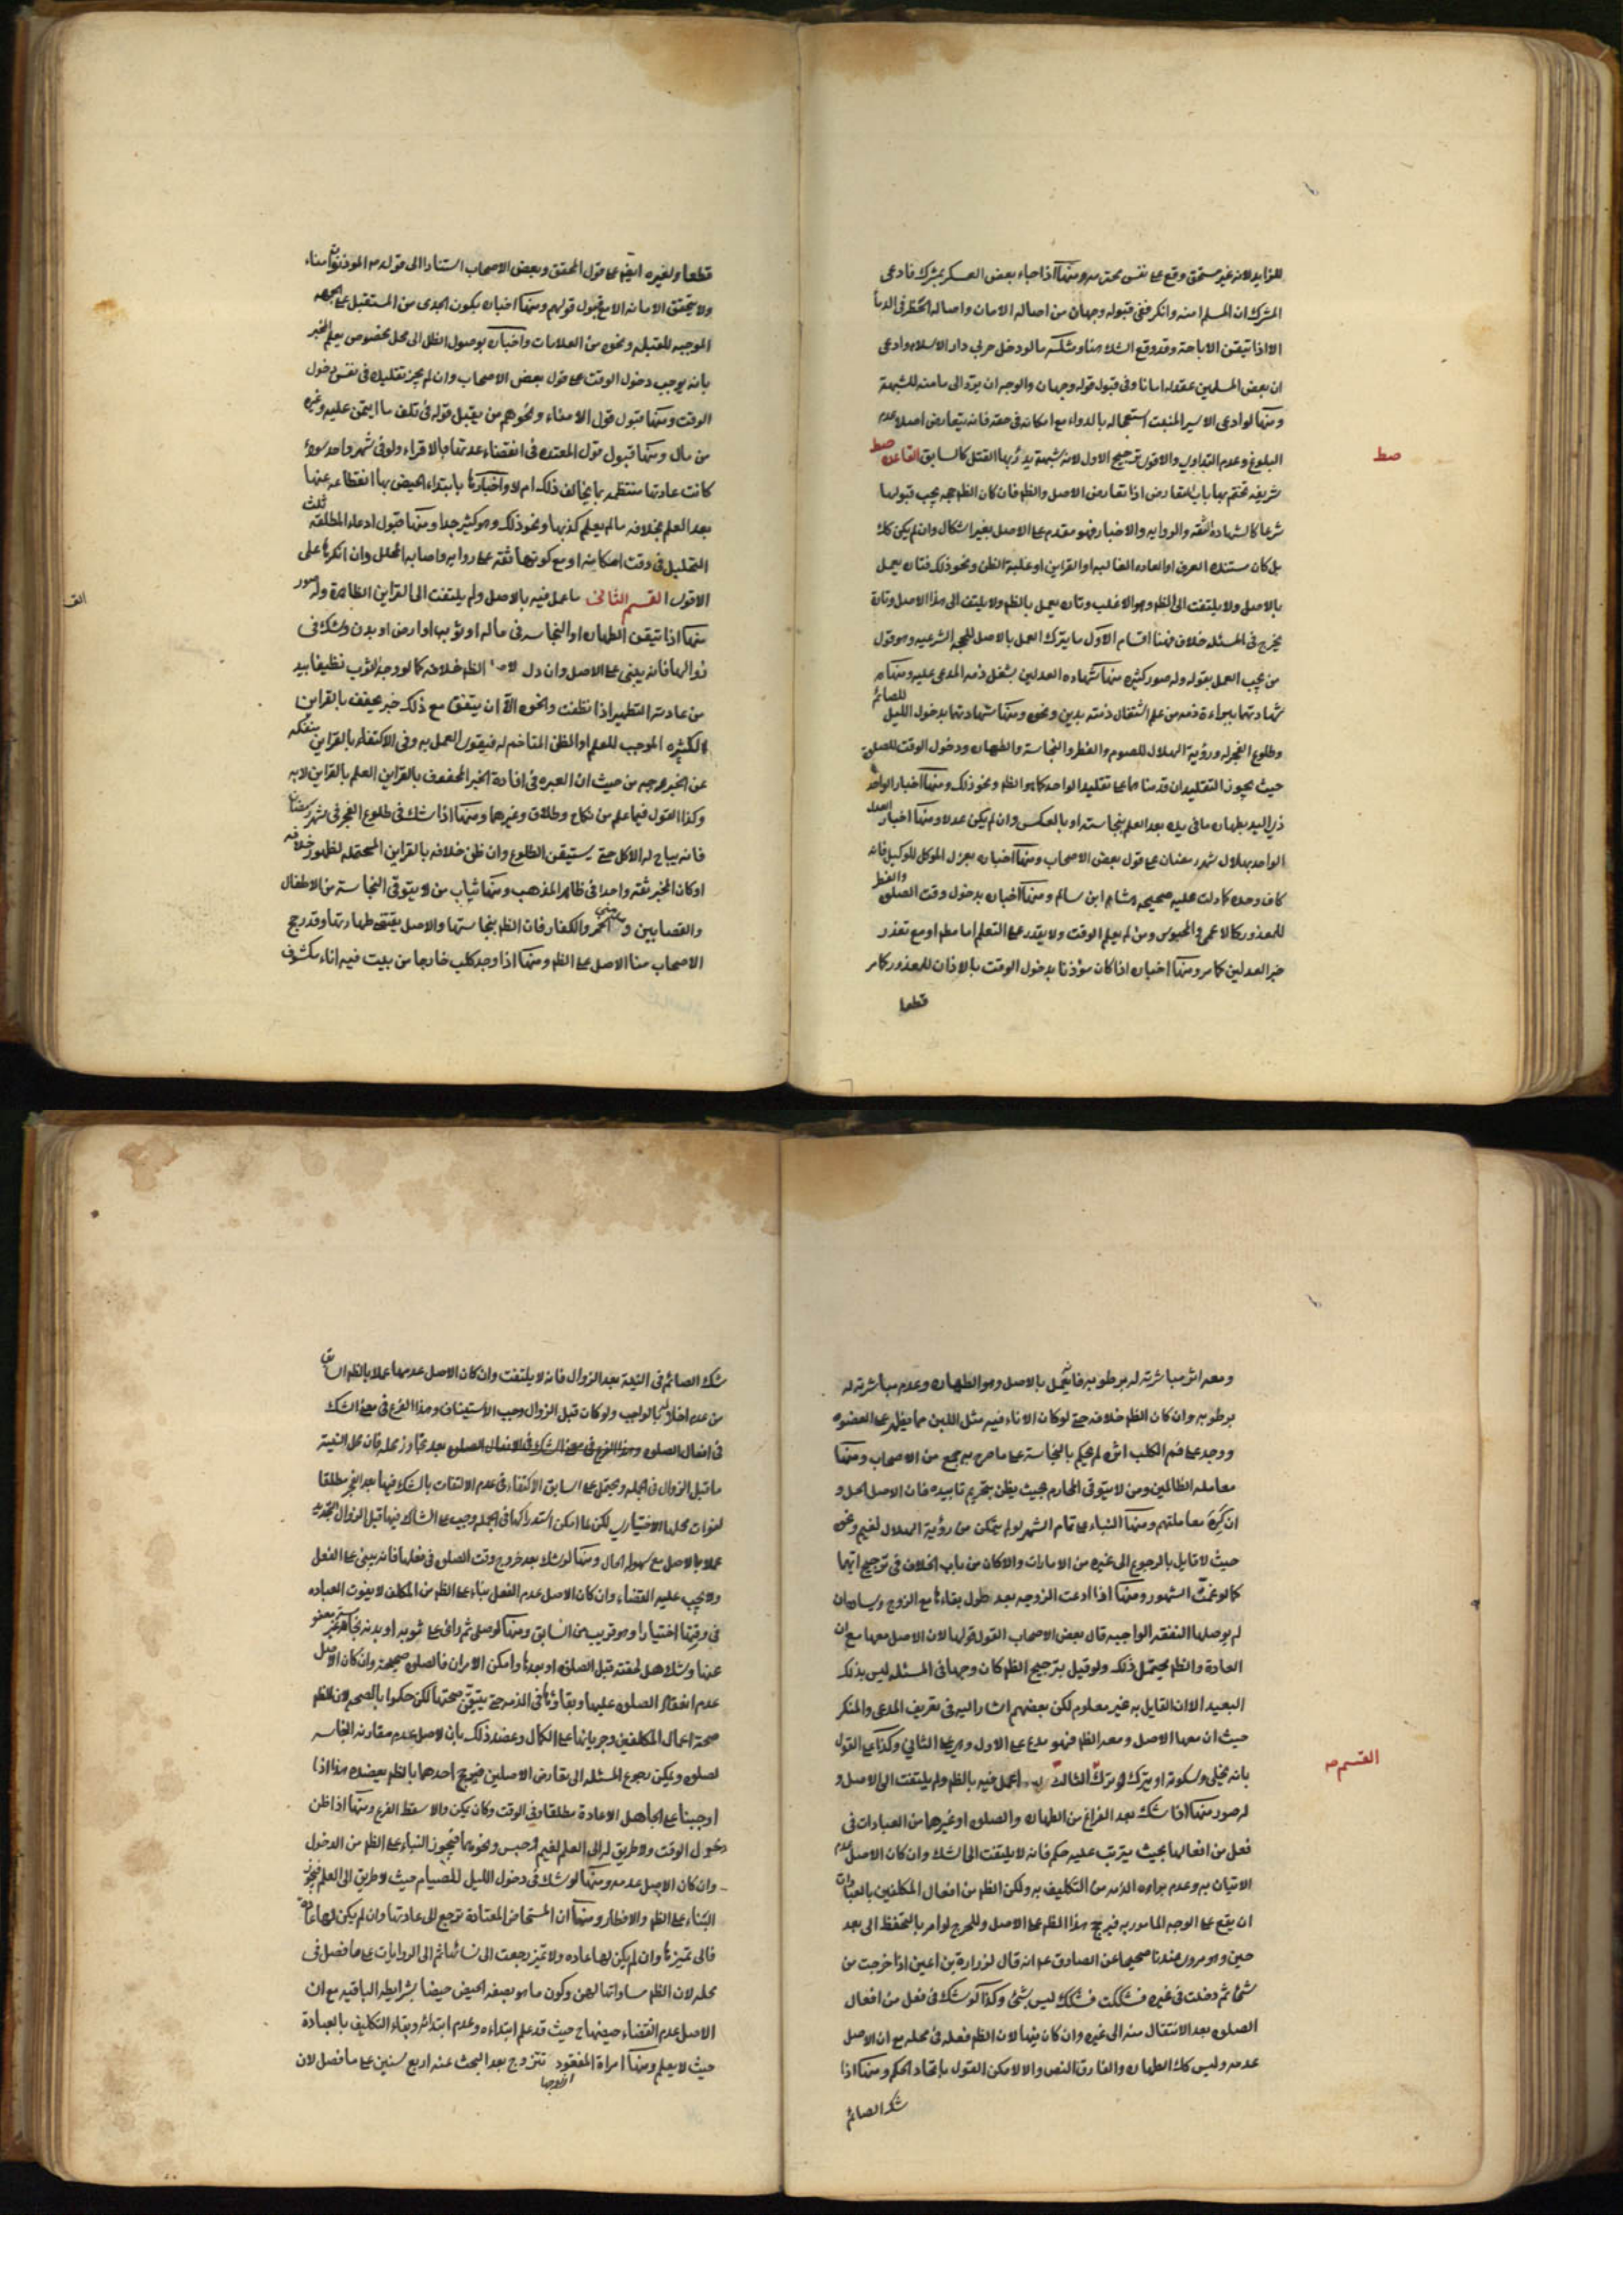 للزايد لانه غير مستحق وقع على نفس محترمه ومنها اذا جاء بعض العسكر بمشرك فادعى
المشرك ان المسلم امنه وانكر ففى قبوله وجهان من اصاله الامان واصاله الحظر فى الدماء
الا اذا تيقن الاباحة وقد وقع الشك هنا ومثله ما لو دخل حربي دار الاسلام وادعى
ان بعض المسلمين عقد له امانا وفى قبول قوله وجهان والوجه ان يرد الى مامنه للشبهة
ومنها لو ادعى الاسير المنبت استعجاله بالدواء مع امكانه فى حقه فانه يتعارض اصلا عدم
البلوغ وعدم التداوي والاقوى ترجيح الاول لانه شبهة يدرا بها القتل كالسابق القاعده صط
صط
شريفه تختم بها باب التعارض اذا تعارض الاصل والظم فان كان الظم حجه يجب قبولها
شرعا كالشهادة الثقه والروايه والاخبار فهو مقدم على الاصل بغير اشكال وان لم يكن كك
بل كان مستنده العرف او العاده الغالبه او القراين او غلبة الظن ونحو ذلك فتاره يعمل
بالاصل ولا يلتفت الى الظم وهو الاغلب وتاره يعمل بالظم ولا يلتفت الى هذا الاصل وتارة
يخرج فى المسئله خلاف فهنا اقسام الاول ما يترك العمل بالاصل للحجه الشرعيه وهو قول
من يجب العمل بقوله وله صور كثيره منها شهاده العدلين بشغل ذمه المدعى عليه ومنها
شهادتهما ببراءة ذمه من علم اشتغال ذمته بدين ونحوه ومنها شهادتهما بدخول الليل للصائم
وطلوع الفجر له ورؤية الهلال للصوم والفطر والنجاسة والطهاره ودخول الوقت للصلوة
حيث يجوز التقليد ان قدمناهما على تقليد الواحد كما هو الظم ونحو ذلك ومنها اخبار الواحد
ذي اليد بطهاره ما فى يده بعد العلم بنجاسته او بالعكس وان لم يكن عدلا ومنها اخبار العدل
الواحد بهلال شهر رمضان على قول بعض الاصحاب ومنها اخباره بعزل الموكل للوكيل فانه
كاف وحده كما دلت عليه صحيحه هشام ابن سالم ومنها اخباره بدخول وقت الصلوة والفطر
للمعذور كالاعمى والمحبوس ومن لم يعلم الوقت ولا يقدر على التعلم اما مطم او مع تعذر
خبر العدلين كما مر ومنها اخباره اذا كان مؤذنا بدخول الوقت بالاذان للمعذور كما مر
قطعا
قطعا ولغيره ايضم على قول المحقق وبعض الاصحاب استنادا الى قوله ص الموذنون امناء
ولا يتحقق الامانه الا مع قبول قولهم ومنها اخباره بكون الجدى من المستقبل على الجهه
الموجبه للقبله ونحوه من العلامات واخباره بوصول الظل الى محل مخصوص يعلم المخبر
بانه يوجب دخول الوقت على قول بعض الاصحاب وان لم يجز تقليده فى نفس دخول
الوقت ومنها قبول قول الامناء ونحوهم من يقبل قوله فى تلف ما ايتمن عليه وغيره
من مال ومنها قبول قول المعتده فى انقضاء عدتها بالاقراء ولو فى شهر واحد سواء
كانت عادتها منتظمه بما يخالف ذلك ام لا واخبارها بابتداء الحيض بها انقطاعه عنها
بعد العلم بخلافه ما لم يعلم كذبها ونحو ذلك وهو كثير جدا ومنها قبول ادعاء المطلقه ثلث
التحليل فى وقت امكانه او مع كونها ثقه على روايه واصابه المحلل وان انكرها على
الاقوى القسم الثانى ما عمل فيه بالاصل ولم يلتفت الى القراين الظاهرة وله صور
منها اذا تيقن الطهاره او النجاسه فى ماله او ثوبه او ارض او بدن وشك فى
زوالها فانه يبنى على الاصل وان دل الظم خلافه كما لو وجد الثوب نظيفا بيد
من عادته التطهير اذا نظفت ونحوه الا ان يتفق مع ذلك خبر محفف بالقراين
الكثيره الموجب للعلم او الظن المتاخم له فيقوى العمل به وفى الاكتفاء بالقراين منفكه
عن الخبر وجه من حيث ان العبره فى افادة الخبر المحفوف بالقراين العلم بالقراين لا به
وكذا القول فيما علم من نكاح وطلاق وغيرهما ومنها اذا شك فى طلوع الفجر فى شهر رمضان
فانه يباح له الاكل حتى يستيقن الطلوع وان ظن خلافه بالقراين المحتمله لظهور خلافه
او كان المخبر ثقه واحدا فى ظاهر المذهب ومنها ثياب من لا يتوقى النجاسة من الاطفال
والقصابين ومدمنى الخمر والكفار فان الظم بنجاستها والاصل يقتضى طهارتها وقد رجح
الاصحاب هنا الاصل على الظم ومنها اذا وجد كلب خارجا من بيت فيه اناء مكشوف
ومعه اثر مباشرته له برطوبه فانه يعمل بالاصل وهو الطهاره وعدم مباشرته له
برطوبه وان كان الظم خلافه حتى لو كان الاناء فيه مثل اللبن مما يظهر على العضو
ووجد على فم الكلب اثره لم يحكم بالنجاسة على ما صرح به جمع من الاصحاب ومنها
معامله الظالمين ومن لا يتوقى المحارم بحيث يظن بتحريم ما بيده فان الاصل الحل و
ان كره معاملتهم ومنها البناء على تمام الشهر لو لم يتمكن من رؤية الهلال لغيم ونحوه
حيث لا قايل بالرجوع الى غيره من الامارات والا كان من باب الخلاف فى ترجيح ايهما
كما لو غمت الشهور ومنها اذا ادعت الزوجه بعد طول بقاءها مع الزوج ويساره ان
لم يوصلها النفقه الواجبه قال بعض الاصحاب القول قولها لان الاصل معها مع ان
العادة والظم يحتمل ذلك ولو قيل بترجيح الظم كان وجها فى المسئله ليس بذلك
البعيد الا ان القايل به غير معلوم لكن بعضهم اشار اليه فى تعريف المدعى والمنكر
حيث ان معها الاصل ومعه الظم فهو مدع على الاول وهى على الثاني وكذا على القول
بانه يخلى وسكوته او يترك لو ترك الثالث ما عمل فيه بالظم ولم يلتفت الى الاصل و
القسم
له صور منها اذا شك بعد الفراغ من الطهاره والصلوة او غيرها من العبادات فى
فعل من افعالها بحيث يترتب عليه حكم فانه لا يلتفت الى الشك وان كان الاصل عدم
الاتيان به وعدم براءه الذمه من التكليف به ولكن الظم من افعال المكلفين بالعبادات
ان يقع على الوجه المامور به فيرجح هذا الظم على الاصل وللحرج لو امر بالتحفظ الى بعد
حين وهو مروى عندنا صحيحا عن الصادق ع انه قال لزرارة بن اعين اذا خرجت من
شئ ثم دخلت فى غيره فشككت فشكك ليس بشئ وكذا لو شك فى فعل من افعال
الصلوة بعد الانتقال منه الى غيره وان كان فيها لان الظم فعله فى محله مع ان الاصل
عدمه وليس كك الطهاره والفارق النص والا لامكن القول باتحاد الحكم ومنها اذا
شك الصائم
شك الصائم فى النية بعد الزوال فانه لا يلتفت وان كان الاصل عدمها عملا بالظم السابق
من عدم اخلاله بالواجب ولو كان قبل الزوال وجب الاستيناف وهذا الفرع فى معنى الشك
فى افعال الصلوة بعد تجاوز محله فان محل النية
ما قبل الزوال فى الجمله ويحتمل على السابق الاكتفاء فى عدم الالتفات بالشك فيها بعد الفجر مطلقا
لفوات محلها الاختيارى لكن لما امكن استدراكها فى الجمله وجب على الشاك فيها قبل الزوال تجديده
عملا بالاصل مع سهوله الحال ومنها لو شك بعد خروج وقت الصلوة فى فعلها فانه يبنى على الفعل
ولا يجب عليه القضاء وان كان الاصل عدم الفعل بناء على الظم من المكلف لا يفوت العباده
فى وقتها اختيارا وهو قريب من السابق ومنها لو صلى ثم رائ على ثوبه او بدنه نجاسه غير معفو
عنها وشك هل لحقته قبل الصلوة او بعدها وامكن الامران فالصلوة صحيحة وان كان الاصل
عدم انعقاد الصلوة عليها وبقاؤها فى الذمه حتى يتيقن صحتها لكن حكموا بالصحه لان الظم
صحة اعمال المكلفين وجريانها على الكمال وعضد ذلك بان الاصل عدم مقارنه النجاسه
لصلوة ويمكن رجوع المسئله الى تعارض الاصلين فيرجح احدهما بالظم بعضده هذا اذا
اوجبنا على الجاهل الاعادة مطلقا او فى الوقت وكان يمكن والا سقط الفرع ومنها اذا ظن
دخول الوقت ولا طريق له الى العلم لغيم او حبس ونحوهما فيجوز البناء على الظم من الدخول
وان كان الاصل عدمه ومنها لو شك فى دخول الليل للصيام حيث لا طريق الى العلم فيجوز
البناء على الظم والافطار ومنها ان المستحاض المعتادة ترجع الى عادتها وان لم يكن لها عاده
فالى تميزها وان لم يكن لها عاده ولا تميز رجعت الى نسائها ثم الى الروايات على ما فصل فى
محله لان الظم مساواتها لهن وكون ما هو بصفه الحيض حيضا بشرايطه الباقيه مع ان
الاصل عدم انقضاء حيضها ح حيث قد علم ابتداءه وعدم ابتدائه وبقاء التكليف بالعبادة
حيث لا يعلم ومنها امراة المفقود تتزوج بعد البحث عنه اربع سنين على ما فصل لان